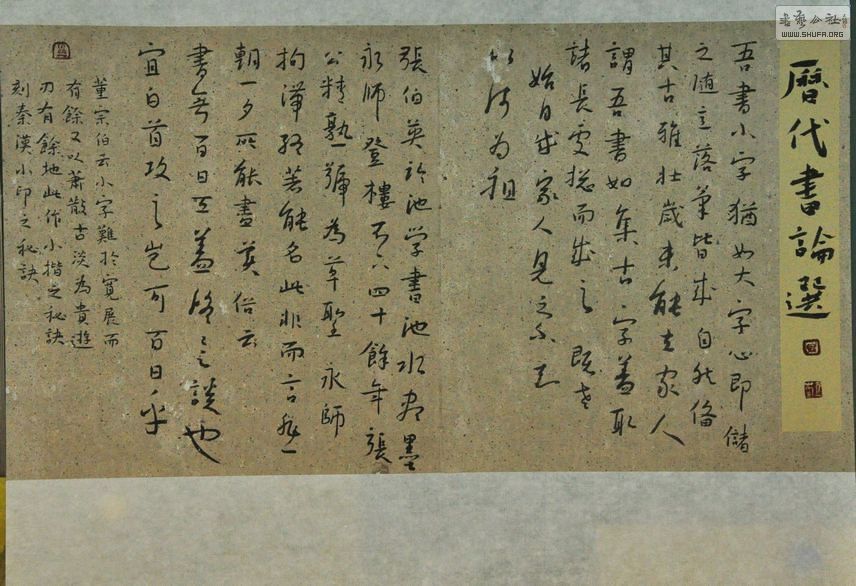 書藝公社
WWW.SHUFA.ORG
曆代書論選
吾書小字猶如大字心即儲
之隨意落筆皆成自然備
其古雅壯歲未能立家人
謂吾書如集古字蓋取
諸長處總而成之既老
始自成家人見之不知
以何為祖
張伯英於池学書池水盡墨
永師登樓不下四十餘年張
公精熟號為草聖永師
拘滯終著能名此非而言非一
朝一夕所能盡美俗云
書無百日工蓋悠悠之談也
宜白首攻之豈可百日乎
董宗伯云小字難於寬展而
有餘又以蕭散古淡為貴遊
刃有餘地此作小楷之秘訣
刻秦漢小印之秘訣